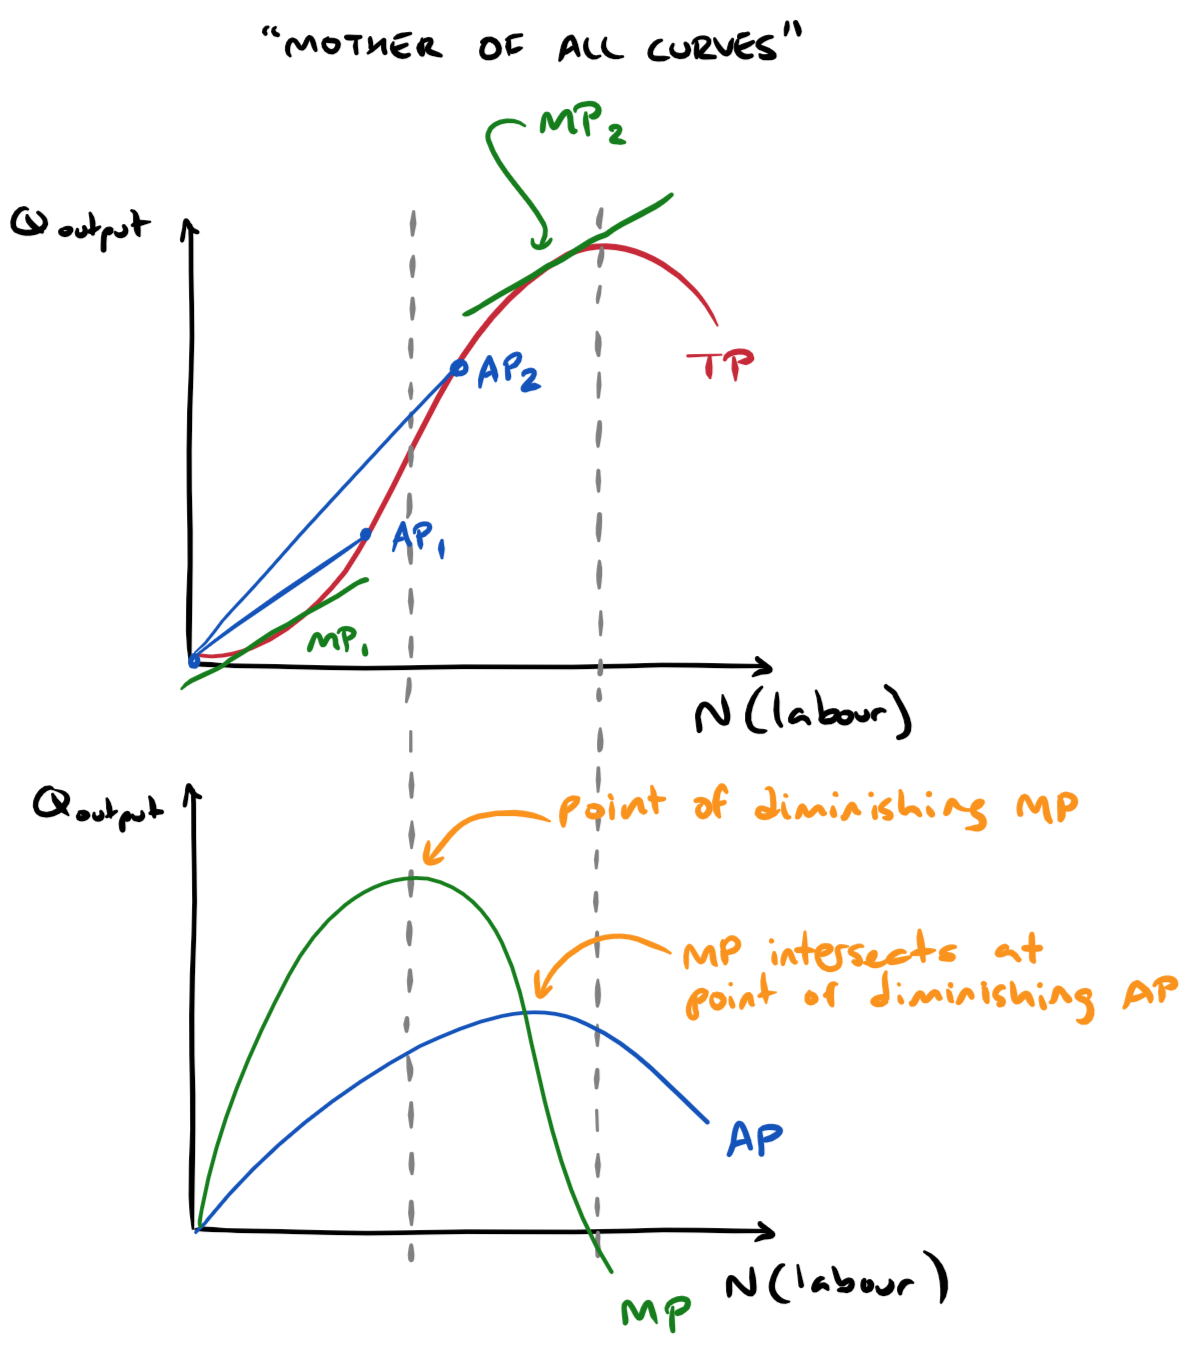 "MOTHER OF ALL CURVES"
MP2
Qoutput
TP
AP2
AP1
MP1
N (labour)
Qoutput
point of diminishing MP
MP intersects at
point of diminishing AP
AP
N (labour)
MP